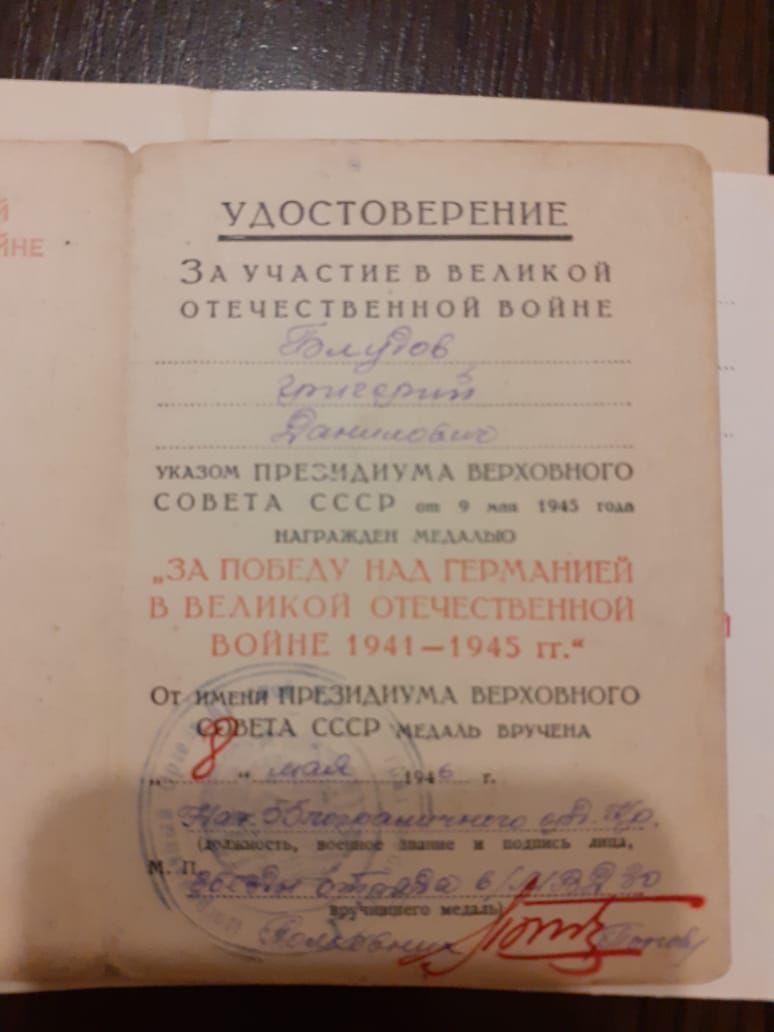 Й
ЙНЕ
УДОСТОВЕРЕНИЕ
ЗА УЧАСТИЕ В ВЕЛИКОЙ
ОТЕЧЕСТВЕННОЙ ВОЙНЕ
Блудов
Григорий
Данилович
УКАЗОМ ПРЕЗИДИУМА ВЕРХОВНОГО
СОВЕТА СССР от 9 мая 1945 года
НАГРАЖДЕН МЕДАЛЬЮ
„ЗА ПОБЕДУ НАД ГЕРМАНИЕЙ
В ВЕЛИКОЙ ОТЕЧЕСТВЕННОЙ
ВОЙНЕ 1941—1945 гг.“
ОТ ИМЕНИ ПРЕЗИДИУМА ВЕРХОВНОГО
СОВЕТА СССР МЕДАЛЬ ВРУЧЕНА
„8“ мая 1946 г.
Нач. пограничного
(должность, военное звание и подпись лица,
М. П. отряда МВД
вручившего медаль)
Полковник Попов